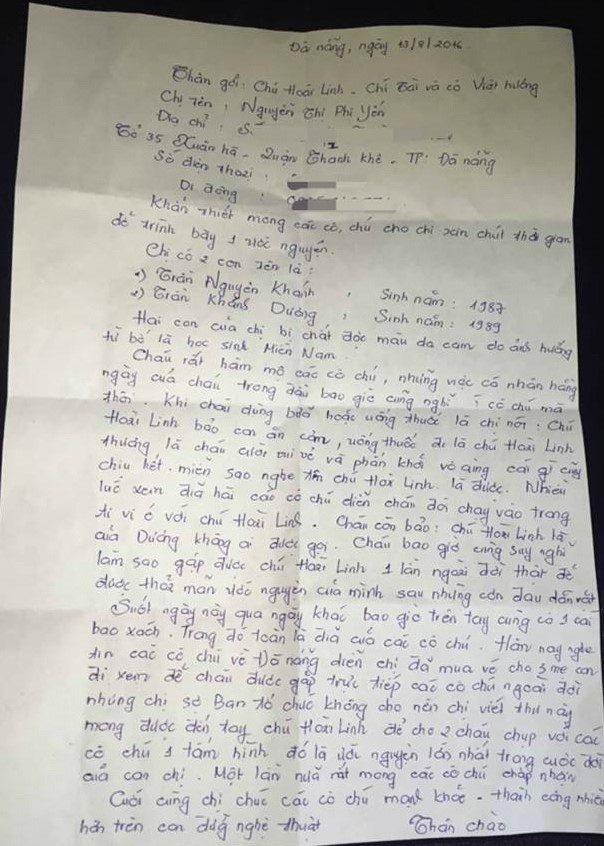 Đà nẵng, ngày 13/8/2016.
Thân gởi: Chú Hoài Linh - Chí Tài và cô Việt hương
Chị tên: Nguyễn Thị Phi Yến
Địa chỉ: S.
Tổ 35 Xuân hà - Quận Thanh khê - TP: Đà nẵng
Số điện thoại:
Di động:
Khẩn thiết mong các cô, chú cho chị xin chút thời gian
để trình bày 1 ước nguyện.
Chị có 2 con tên là:
1) Trần Nguyên Khanh, Sinh năm: 1987
2) Trần Khánh Dương, Sinh năm: 1989
Hai con của chị bị chất độc màu da cam do ảnh hưởng
từ bố là học sinh Miền Nam.
Cháu rất hâm mộ các cô chú, những việc cá nhân hằng
ngày của cháu trong đầu bao giờ cũng nghĩ cô chú mà
thôi. Khi cháu dùng bữa hoặc uống thuốc là chị nói: Chú
Hoài Linh bảo con ăn cơm, uống thuốc đi là chú Hoài Linh
thương là cháu cười vui vẻ và phấn khởi vô cùng cái gì cũng
chịu hết. miễn sao nghe tên chú Hoài Linh là được. Nhiều
lúc xem dĩa hài các cô chú diễn cháu đòi chạy vào trong
ti vi ở với chú Hoài Linh. Cháu còn bảo: chú Hoài Linh là
của Dương không ai được gọi. Cháu bao giờ cũng suy nghĩ
làm sao gặp được chú Hoài Linh 1 lần ngoài đời thật để
được thoả mãn ước nguyện của mình sau những cơn đau dồn vật
Suốt ngày này qua ngày khác bao giờ trên tay cũng có 1 cái
bao xách. Trong đó toàn là dĩa của các cô chú. Hôm nay nghe
tin các cô chú về Đà nẵng diễn chị đã mua vé cho 3 mẹ con
đi xem để cháu được gặp trực tiếp các cô chú ngoài đời
nhưng chị sợ Ban tổ chức không cho nên chị viết thư này
mong được đến tay chú Hoài Linh để cho 2 cháu chụp với các
cô chú 1 tấm hình đó là ước nguyện lớn nhất trong cuộc đời
của con chị. Một lần nữa rất mong các cô chú chấp nhận
Cuối cùng chị chúc các cô chú mạnh khoẻ - thành công nhiều
hơn trên con đường nghệ thuật
Thân chào